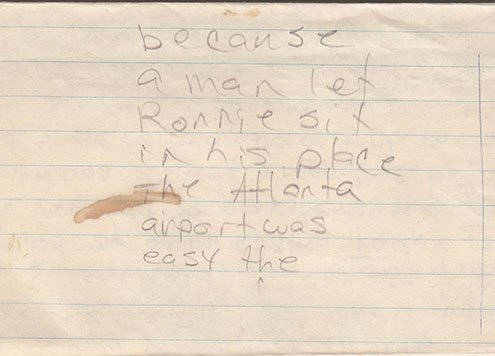 because
a man let
Ronnie sit
in his place
The Atlanta
airport was
easy the